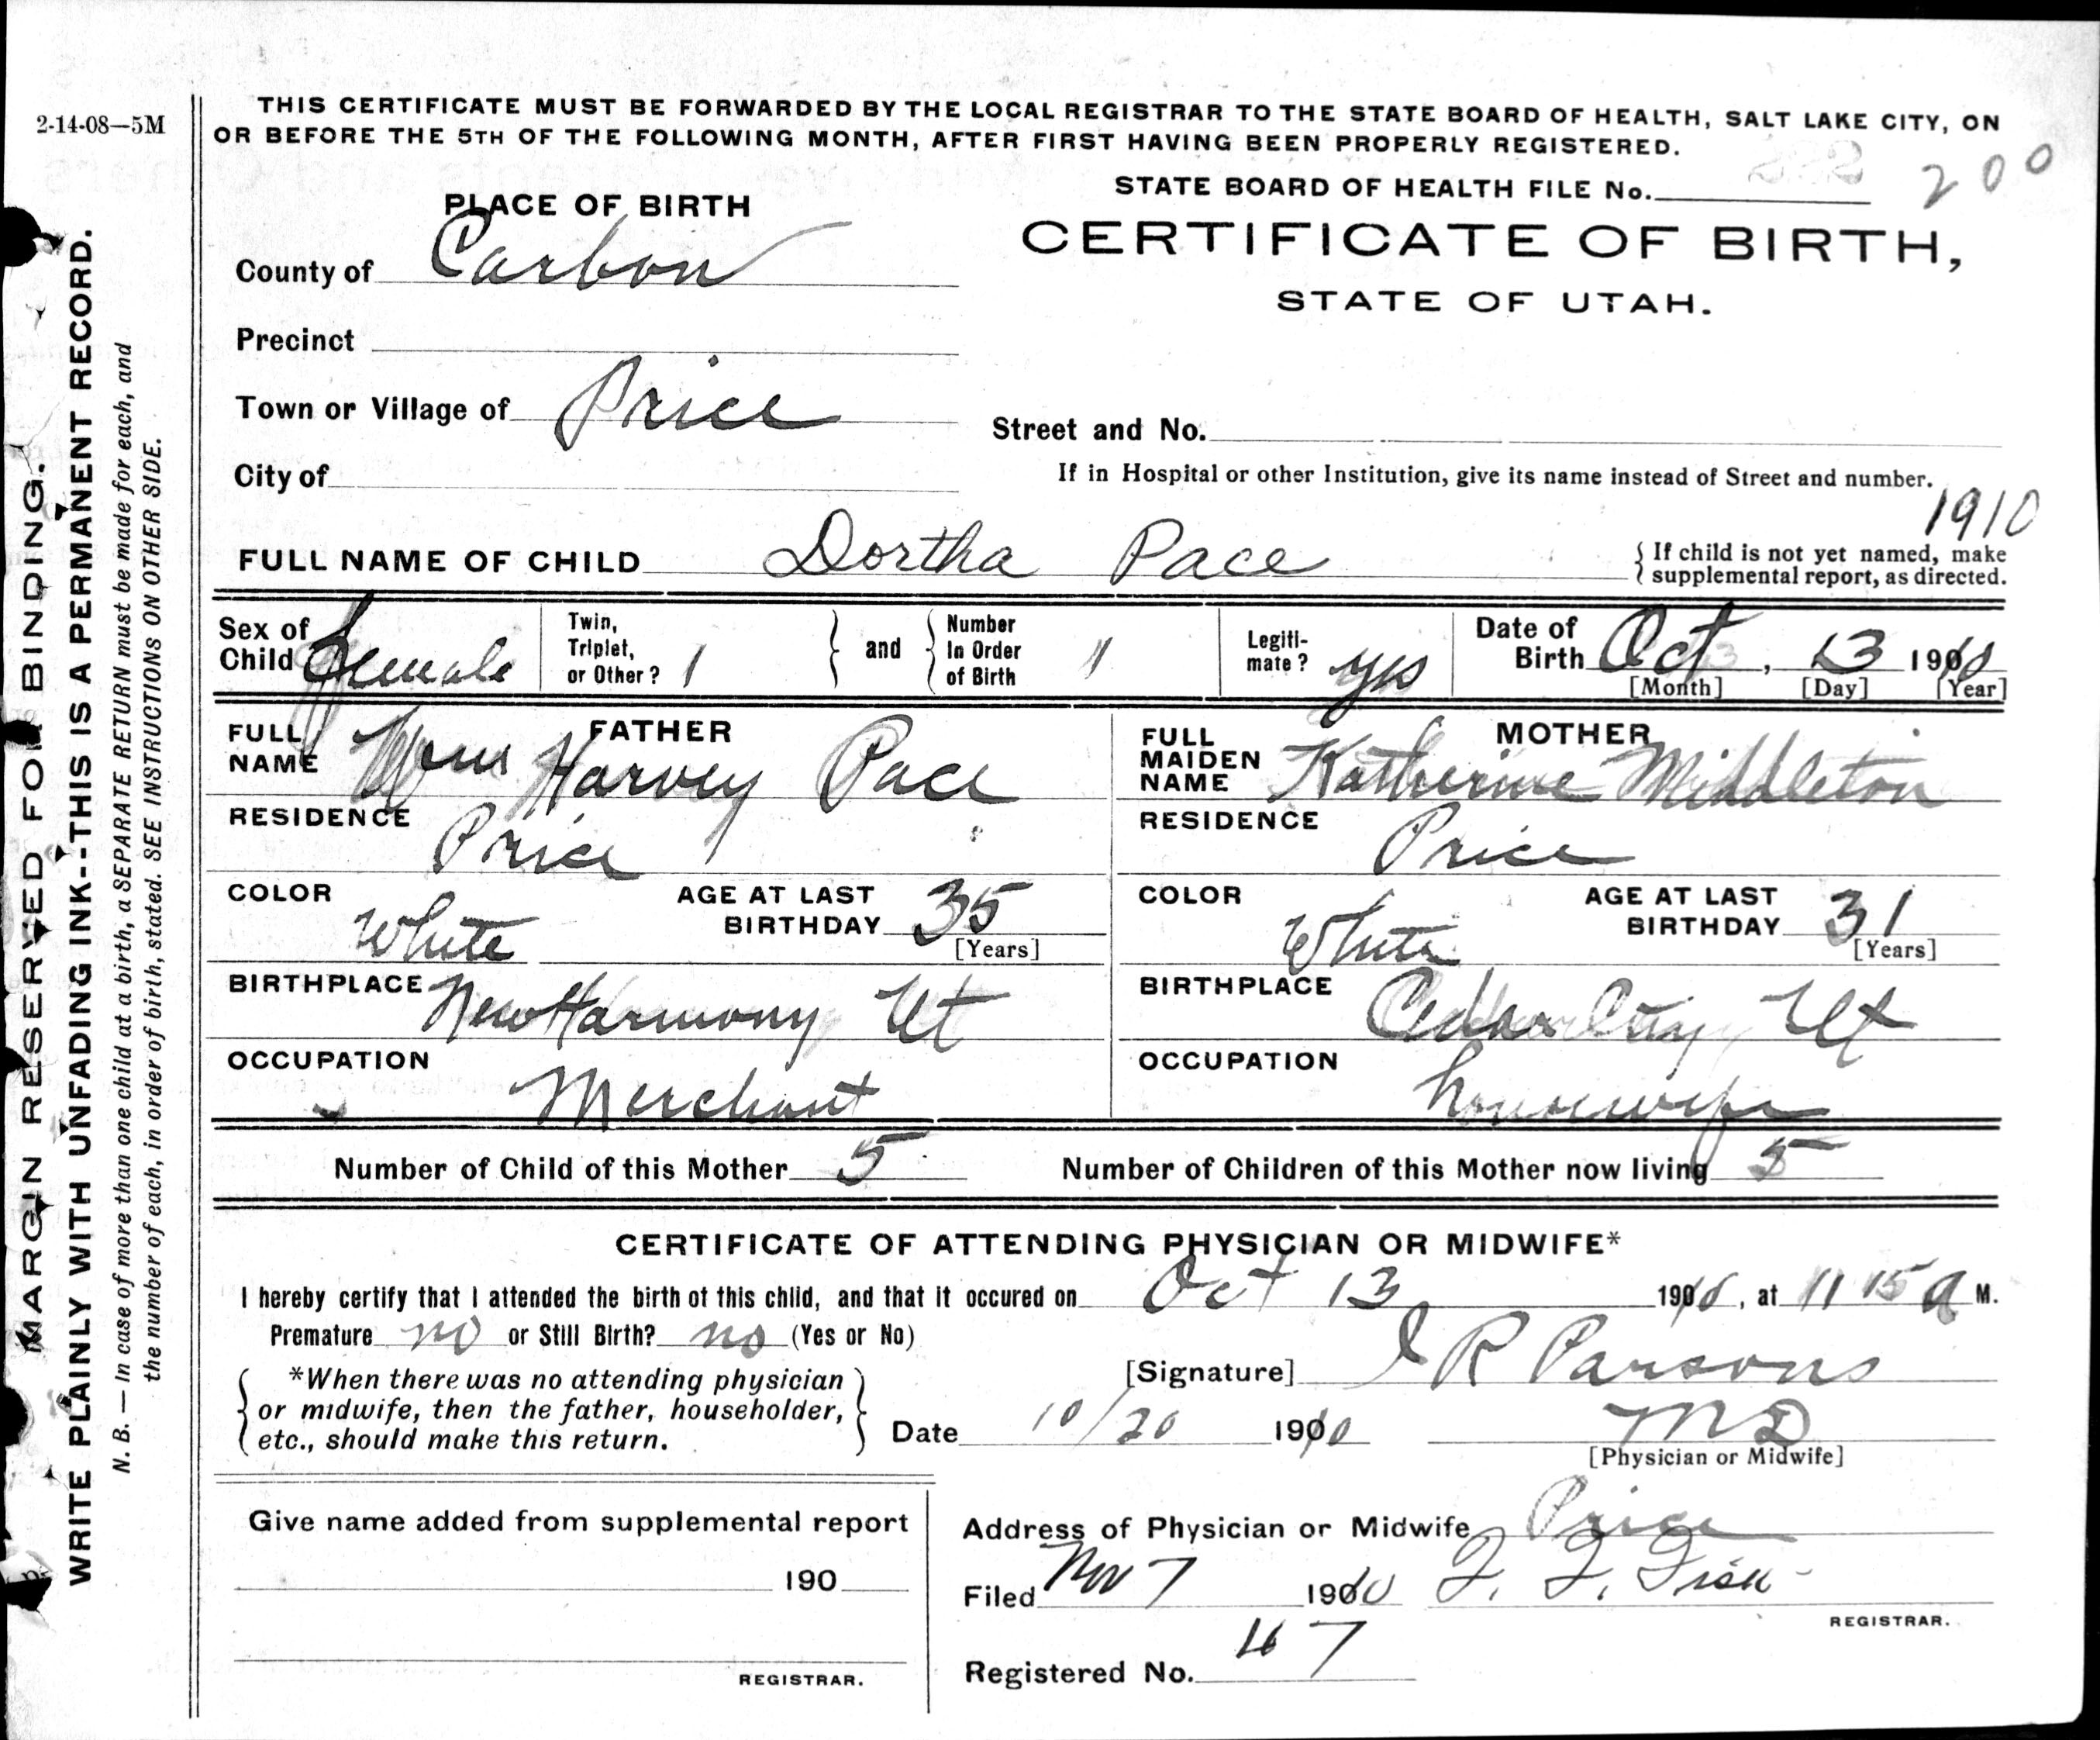 2-14-08—5M
THIS CERTIFICATE MUST BE FORWARDED BY THE LOCAL REGISTRAR TO THE STATE BOARD OF HEALTH, SALT LAKE CITY, ON
OR BEFORE THE 5TH OF THE FOLLOWING MONTH, AFTER FIRST HAVING BEEN PROPERLY REGISTERED.
STATE BOARD OF HEALTH FILE No. 200
PLACE OF BIRTH
CERTIFICATE OF BIRTH,
STATE OF UTAH.
County of Carbon
Precinct
Town or Village of Price
Street and No.
City of
If in Hospital or other Institution, give its name instead of Street and number.
1910
FULL NAME OF CHILD Dortha Pace
{ If child is not yet named, make
supplemental report, as directed.
Sex of Child female
Twin, Triplet, or Other? 1 } and { Number In Order of Birth 1
Legiti-mate? yes
Date of Birth Oct, 13 1910
[Month] [Day] [Year]
FATHER
FULL NAME Wm Harvey Pace
RESIDENCE Price
COLOR White
AGE AT LAST BIRTHDAY 35
[Years]
BIRTHPLACE New Harmony Ut
OCCUPATION Merchant
MOTHER
FULL MAIDEN NAME Katherine Middleton
RESIDENCE Price
COLOR White
AGE AT LAST BIRTHDAY 31
[Years]
BIRTHPLACE Cedar City Ut
OCCUPATION housewife
Number of Child of this Mother 5 Number of Children of this Mother now living 5
CERTIFICATE OF ATTENDING PHYSICIAN OR MIDWIFE*
I hereby certify that I attended the birth of this child, and that it occured on Oct 13 1910, at 11 15 a M.
Premature no or Still Birth? no (Yes or No)
[Signature] R Parsons
M D
[Physician or Midwife]
{ *When there was no attending physician }
or midwife, then the father, householder,
etc., should make this return.
Date 10/20 1910
Give name added from supplemental report
190
REGISTRAR.
Address of Physician or Midwife Price
Filed Nov 7 1910 Fisk
REGISTRAR.
Registered No. 47
MARGIN RESERVED FOR BINDING.
WRITE PLAINLY WITH UNFADING INK--THIS IS A PERMANENT RECORD.
N. B. — In case of more than one child at a birth, a SEPARATE RETURN must be made for each, and
the number of each, in order of birth, stated. SEE INSTRUCTIONS ON OTHER SIDE.